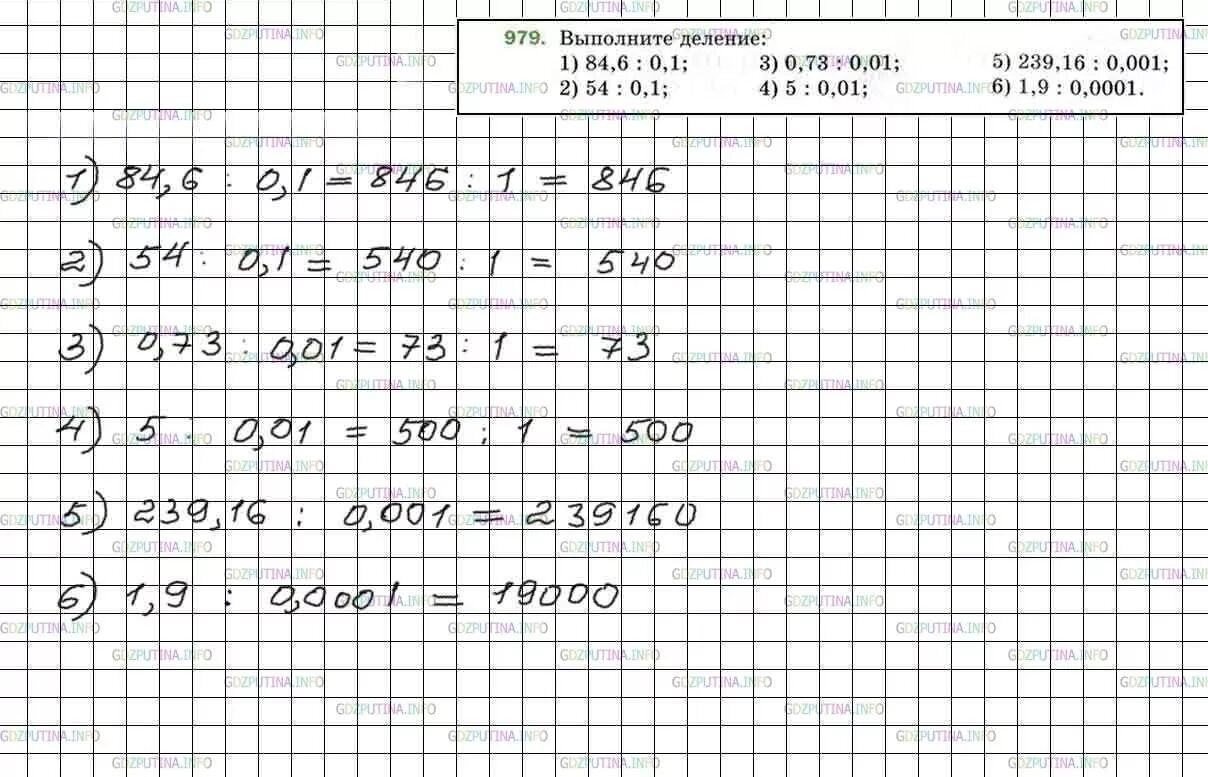 979. Выполните деление:
1) 84,6 : 0,1; 3) 0,73 : 0,01; 5) 239,16 : 0,001;
2) 54 : 0,1; 4) 5 : 0,01; 6) 1,9 : 0,0001.
1) 84,6 : 0,1 = 846 : 1 = 846
2) 54 : 0,1 = 540 : 1 = 540
3) 0,73 : 0,01 = 73 : 1 = 73
4) 5 : 0,01 = 500 : 1 = 500
5) 239,16 : 0,001 = 239160
6) 1,9 : 0,0001 = 19000
GDZPUTINA.INFO